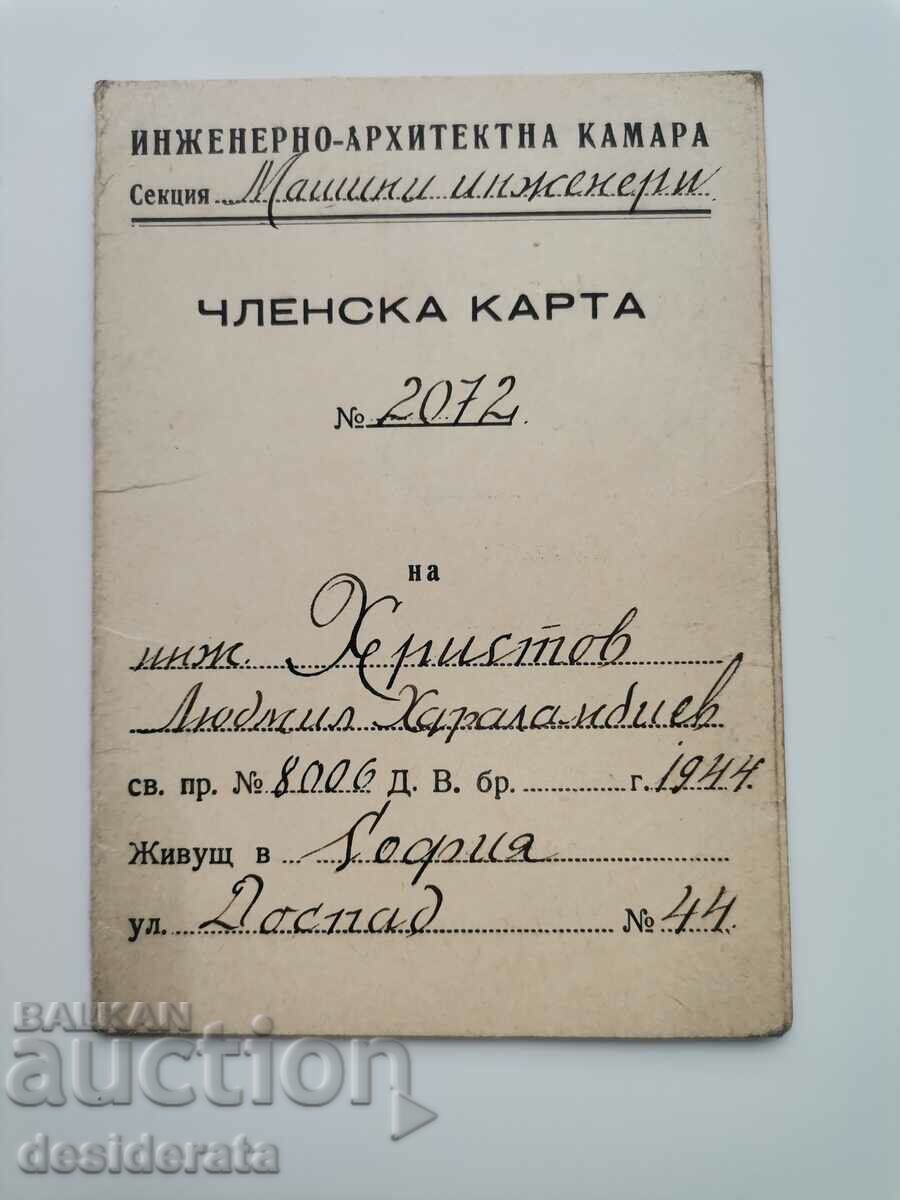 ИНЖЕНЕРНО-АРХИТЕКТНА КАМАРА
Секция Машини инженери
ЧЛЕНСКА КАРТА
№ 2072
на
инж. Христов
Людмил Хараламбиев
св. пр. № 8006 Д. В. бр. г. 1944
Живущ в София
ул. Доспад № 44
BALKAN
auction
desiderata